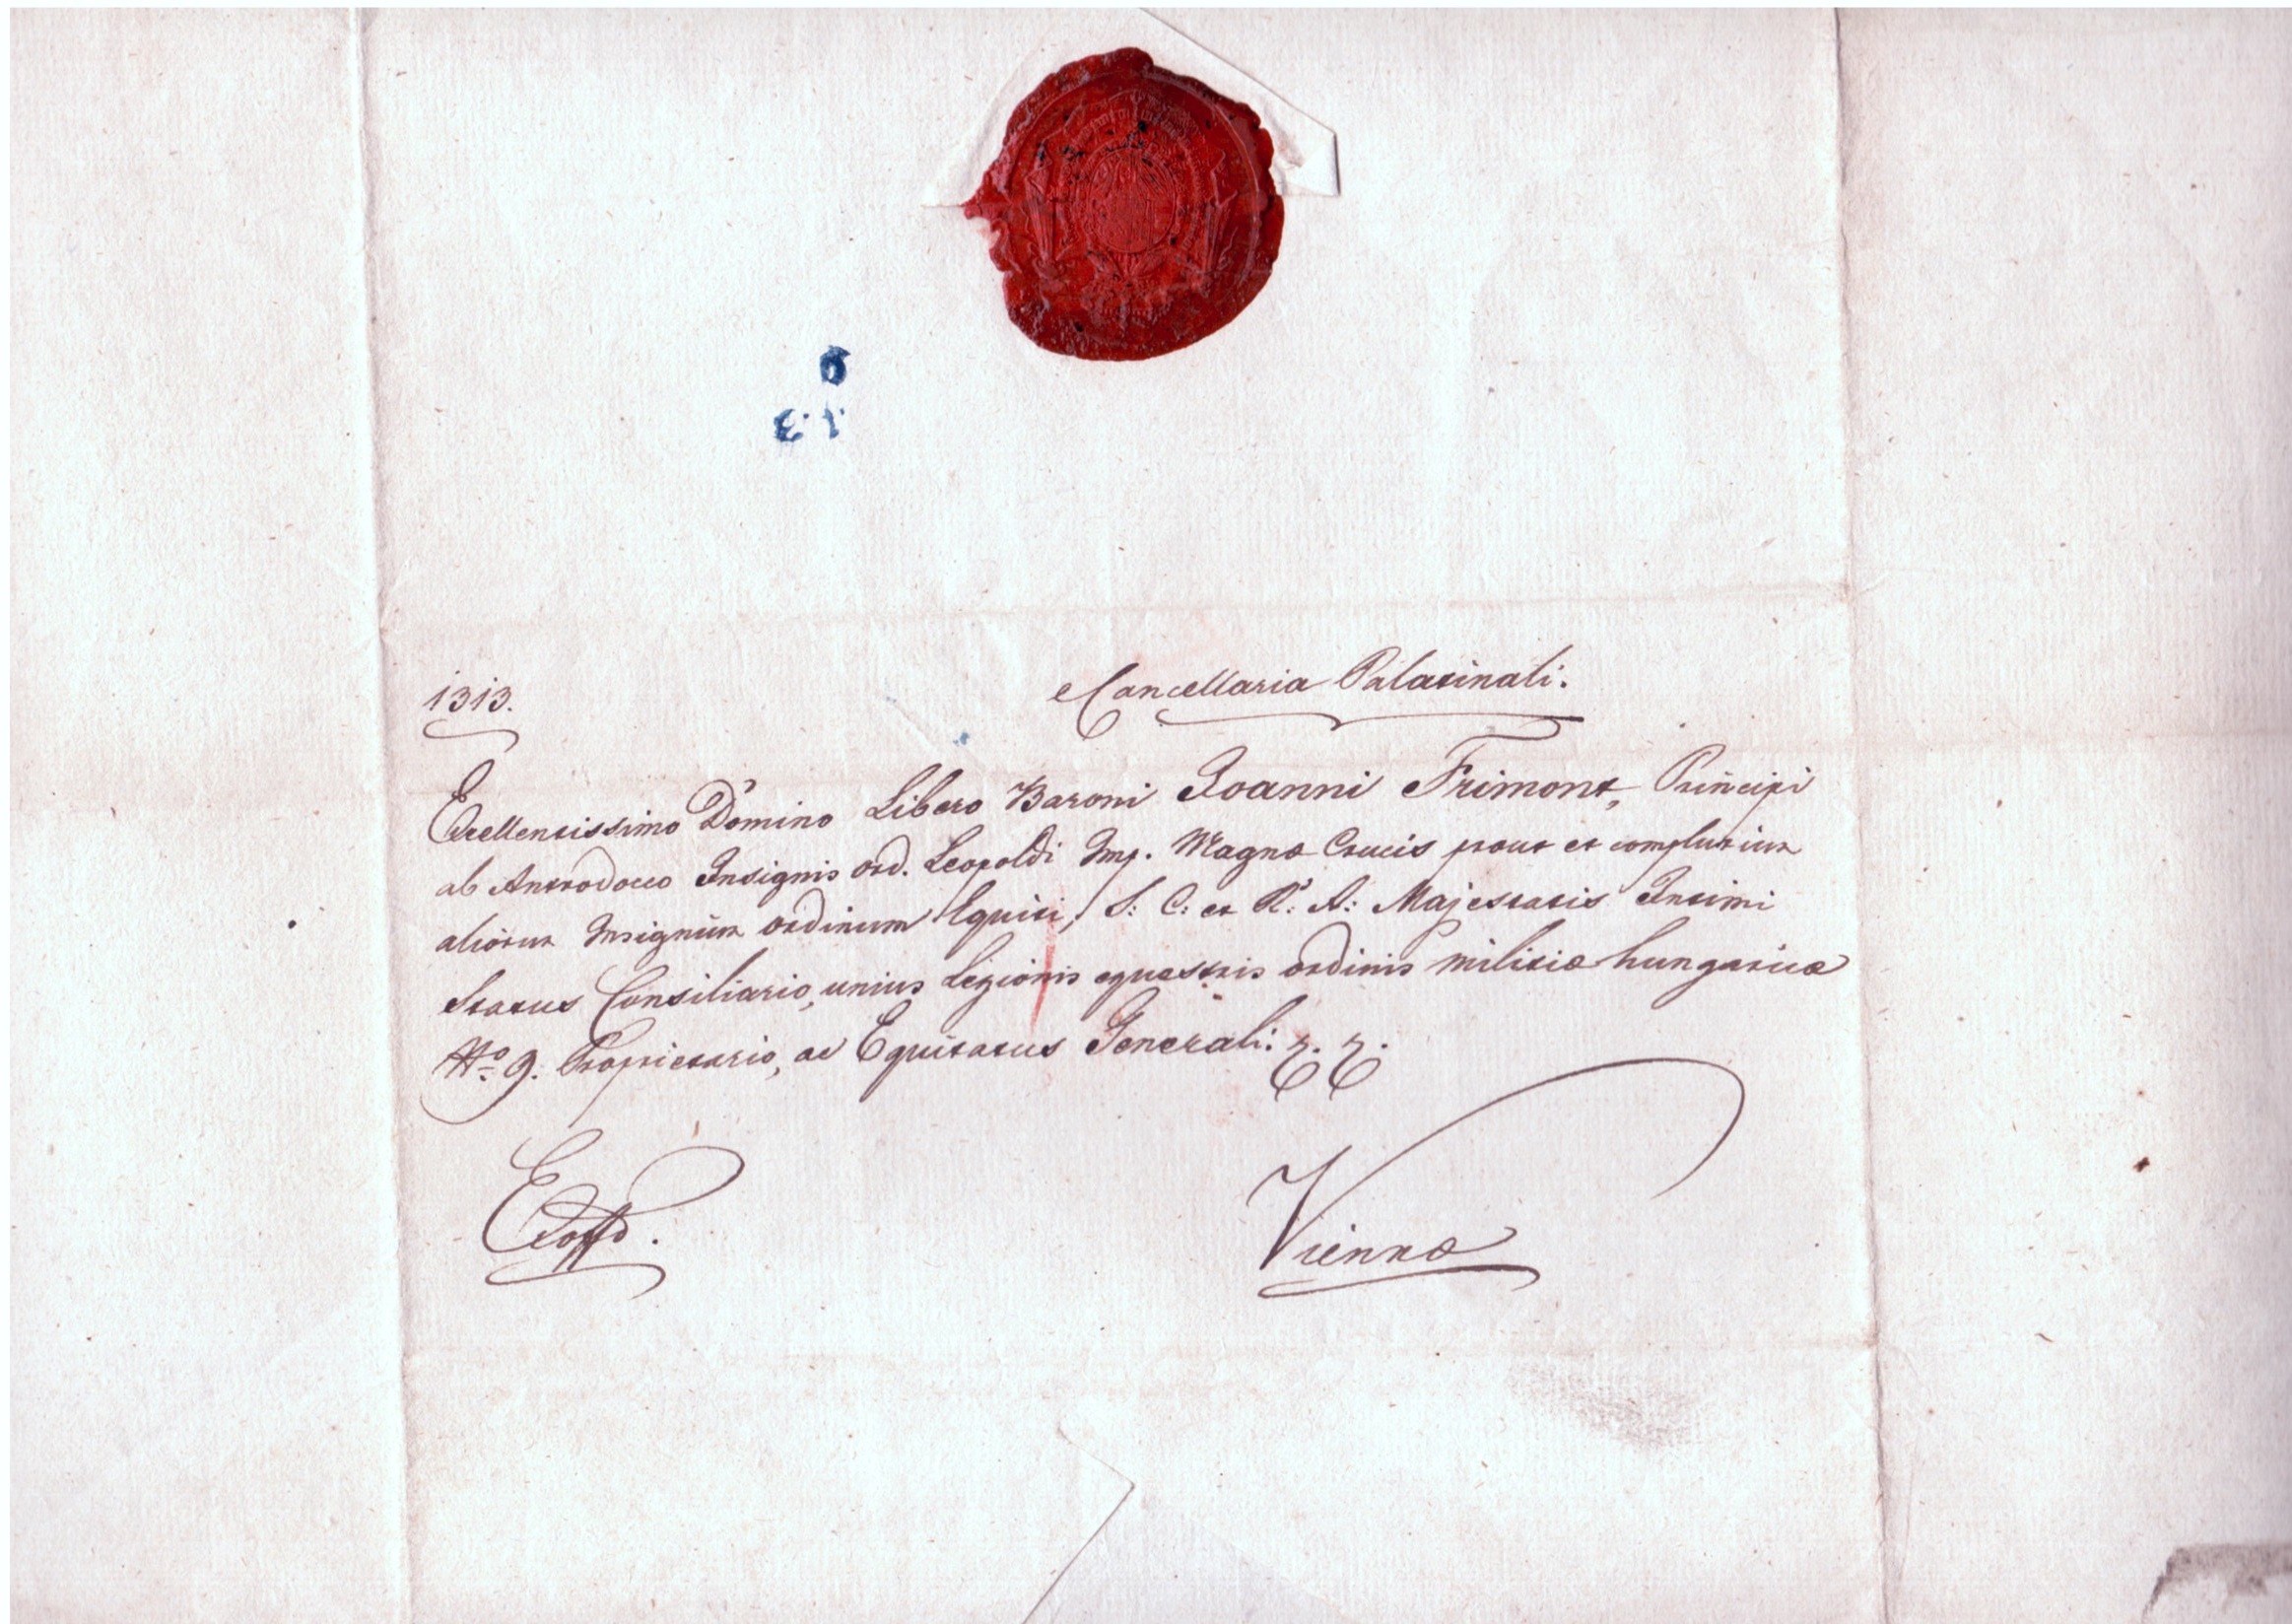 1313.
e Cancellaria Palatinali.
Excellentissimo Domino Libero Baroni Joanni Frimont, Principi
ab Antrodocco Insignis Ord. Leopoldi Imp. Magnæ Crucis prout et complurium
aliorum Insignium Ordinum Equiti, S: C: et R: A: Majestatis Intimi
Status Consiliario, unius Legionis equestris ordinis militiæ hungaricæ
No. 9. Proprietario, ac Equitatus Generali.
Ex offo.
Viennæ